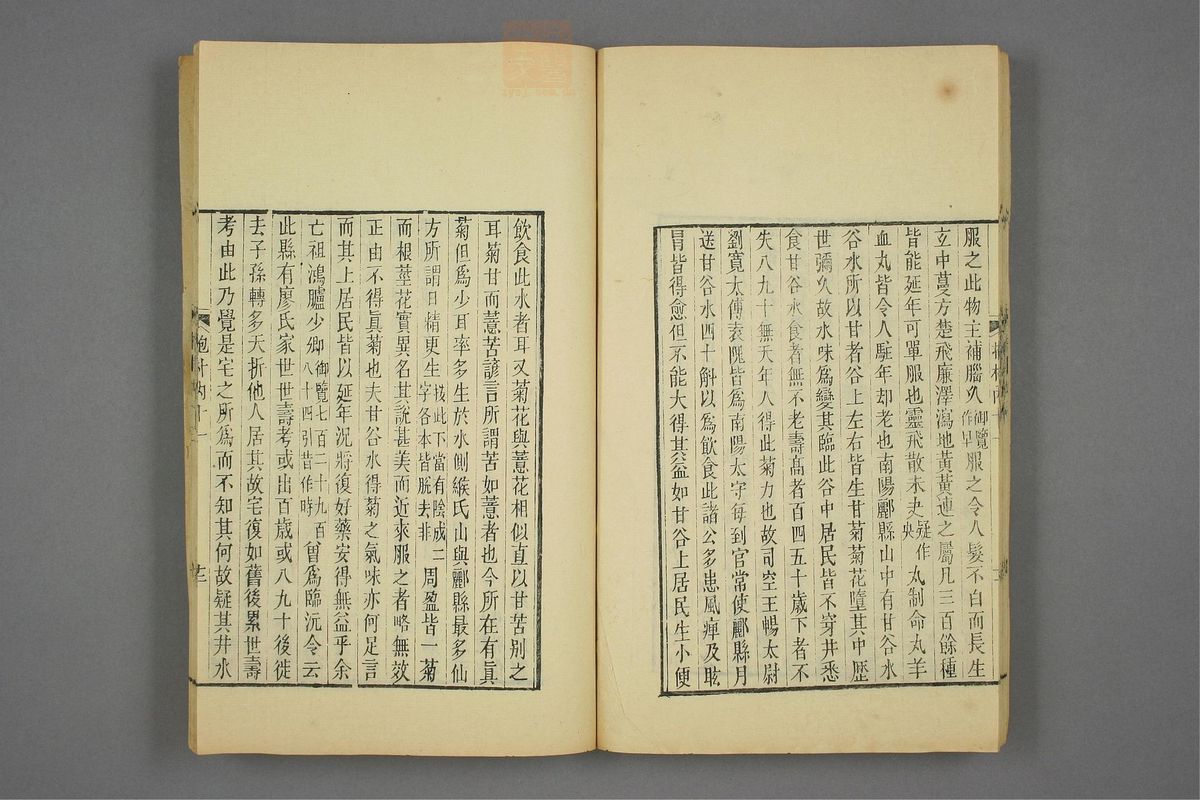 服之此物主補腦久御覽作早服之令人髮不白而長生
立中蔓方楚飛廉澤瀉地黃黃連之屬凡三百餘種
皆能延年可單服也靈飛散未夬疑作央丸制命丸羊
血丸皆令人駐年却老也南陽酈縣山中有甘谷水
谷水所以甘者谷上左右皆生甘菊菊花墮其中歷
世彌久故水味爲變其臨此谷中居民皆不穿井悉
食甘谷水食者無不老壽高者百四五十歲下者不
失八九十無夭年人得此菊力也故司空王暢太尉
劉寬太傅袁隗皆爲南陽太守每到官常使酈縣月
送甘谷水四十斛以爲飲食此諸公多患風痺及眩
冒皆得愈但不能大得其益如甘谷上居民生小便
飲食此水者耳又菊花與薏花相似直以甘苦別之
耳菊甘而薏苦諺言所謂苦如薏者也今所在有眞
菊但爲少耳率多生於水側緱氏山與酈縣最多仙
方所謂日精更生按此下當有陰成二字各本皆脫去非周盈皆一菊
而根莖花實異名其說甚美而近來服之者略無效
正由不得眞菊也夫甘谷水得菊之氣味亦何足言
而其上居民皆以延年況將復好藥安得無益乎余
亡祖鴻臚少卿御覽七百二十九百八十四引昔作時曾爲臨沅令云
此縣有廖氏家世世壽考或出百歲或八九十後徙
去子孫轉多夭折他人居其故宅復如舊後累世壽
考由此乃覺是宅之所爲而不知其何故疑其井水
抱朴內十一